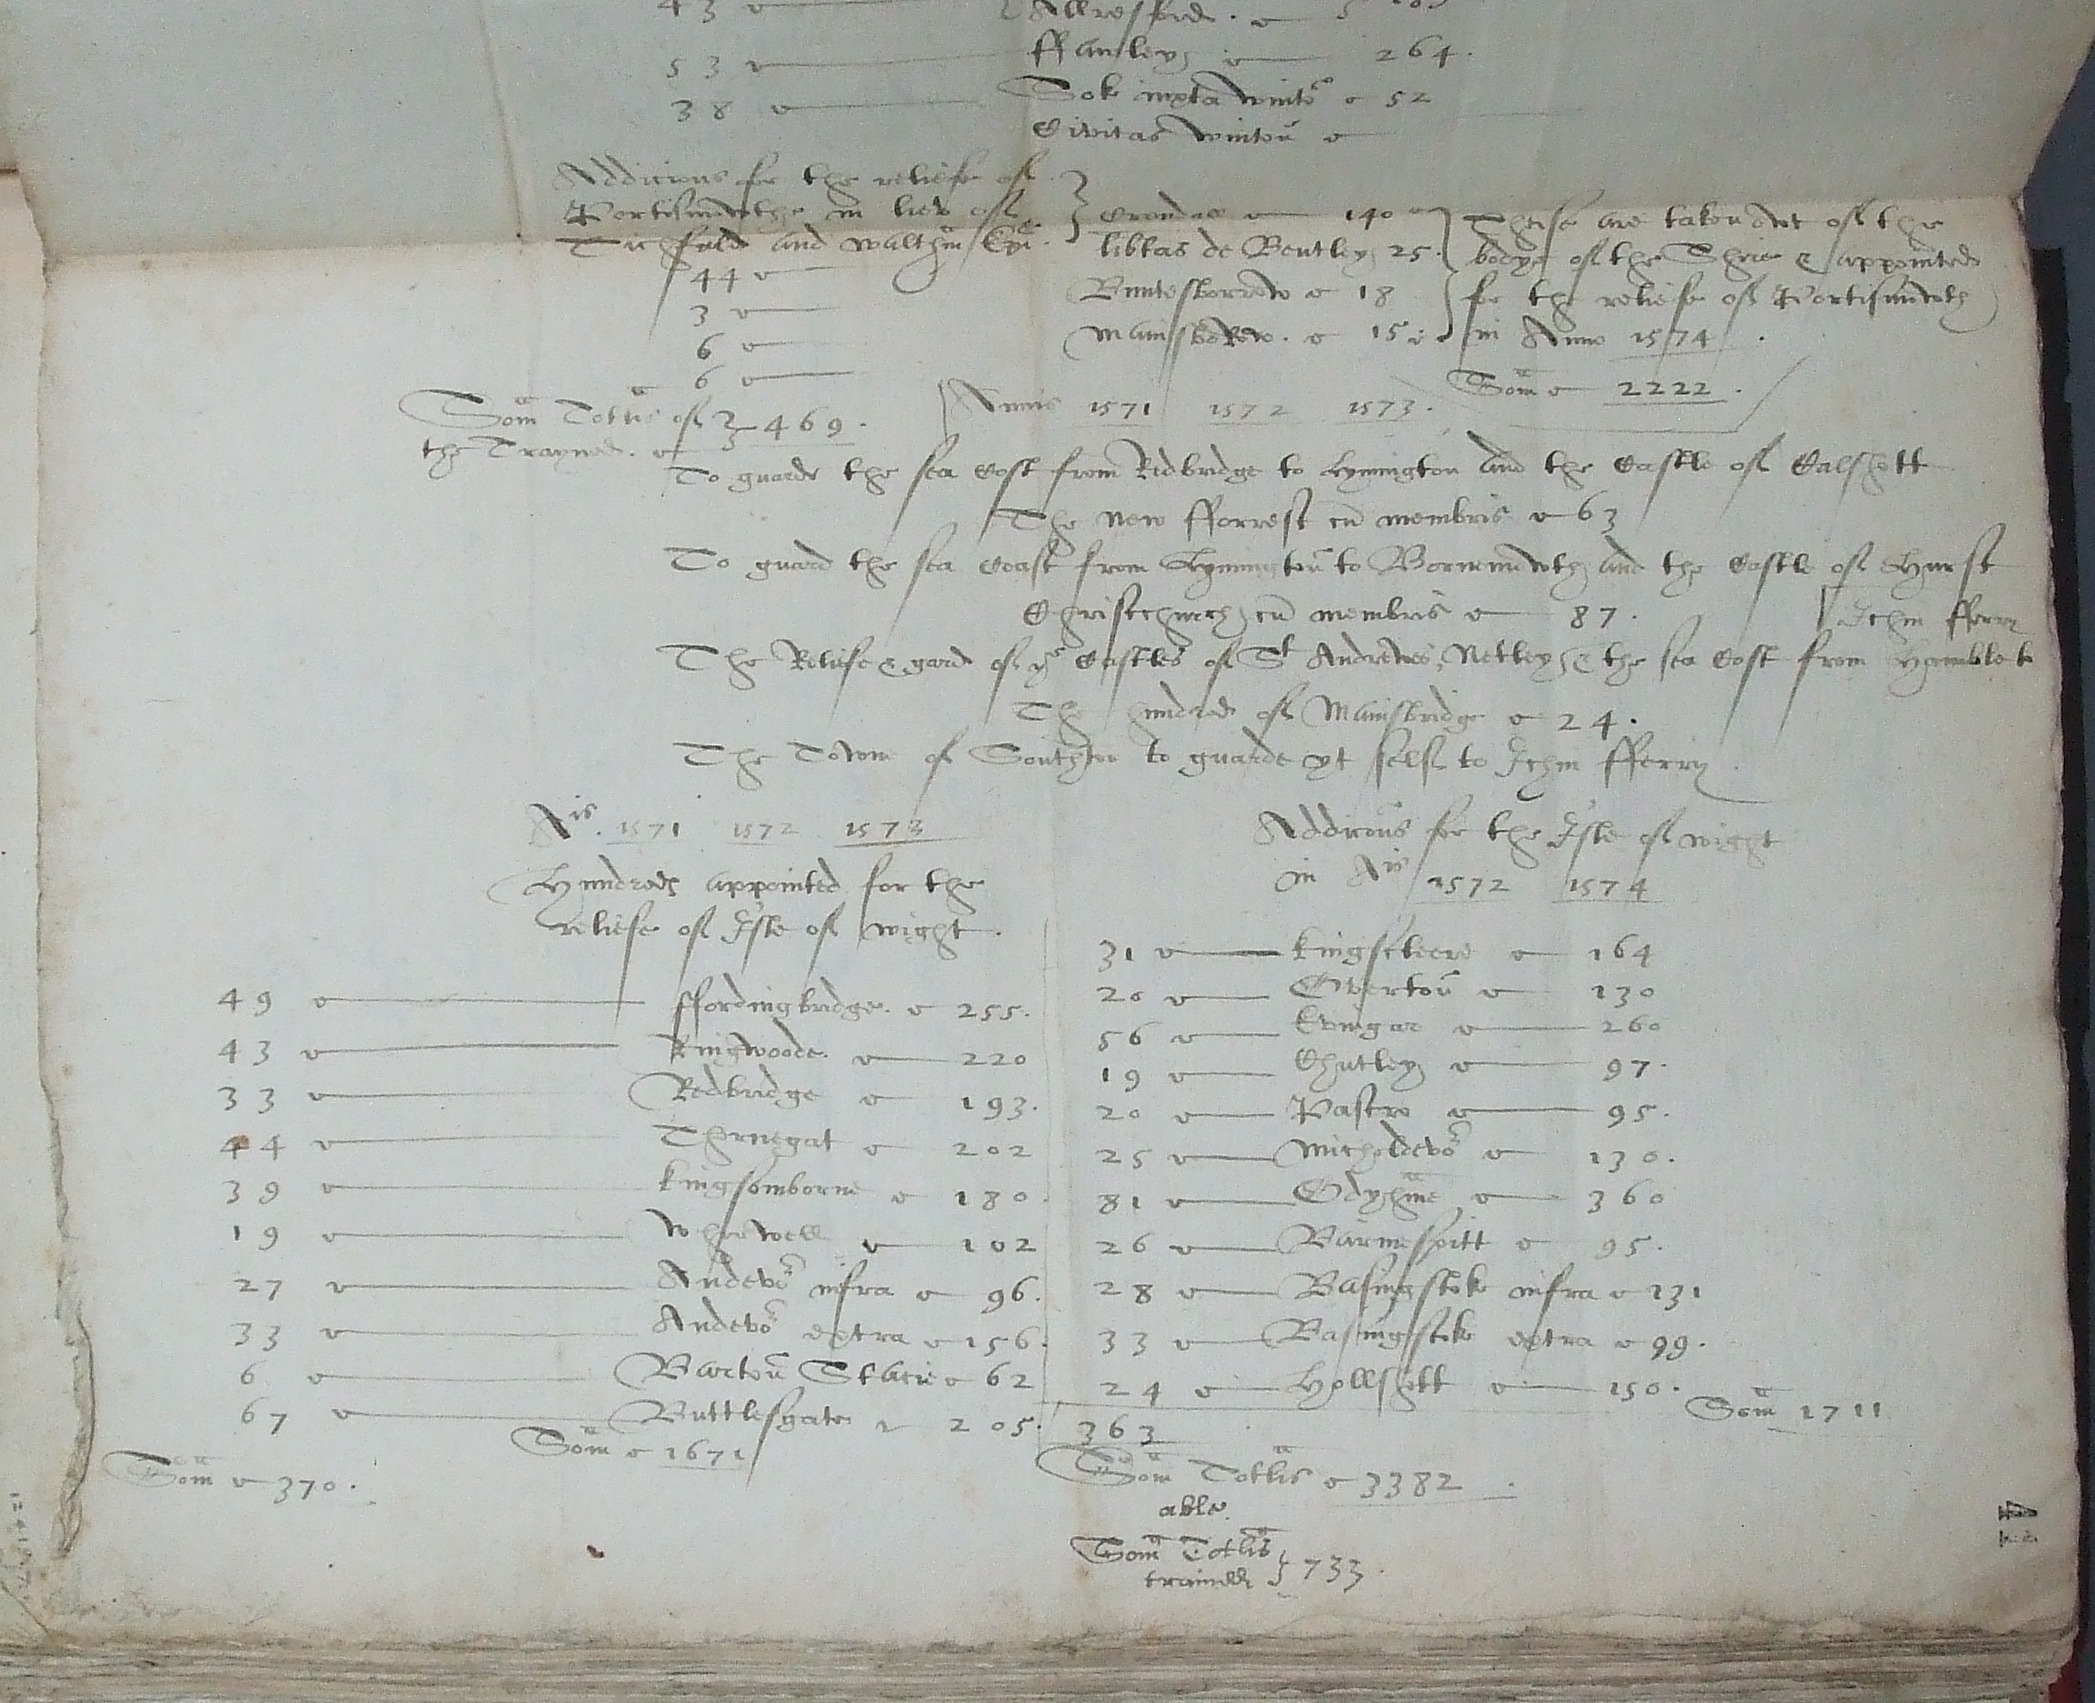 43 Allresford
53 ffawley 264.
38 Sok iuxta winto 52
Civitas winton
Addicions for the reliefe of
Portismowthe in liev of
Tichfeld and waltham Epi.
Crondal 140
lib̃tas de Bentley 25.
Buntesborrow 18
Mainsborow. 15
These are taken owt of the
bodye of the Shire & appointed
for the reliefe of Portismowth
in Anno 1574.
44
3
6
6
Som̃ 2222.
Som̃ Totlis of
the Trayned. 469.
Annis 1571 1572 1573.
To guarde the sea Cost from Redbridge to Lymington and the Castle of Calshott
The New fforrest cũ membris 63
To guard the sea Coast from Lymingtoñ to Bornemowth and the Castle of Hurst
Christchurch cũ membris 87.
Ichin fferry
The Reliefe & gard of yᵉ Castles of Sᵗ Andrewes, Netley & the sea Cost from Hamble to
The hundred of Mainsbridge 24.
The Towne of Southton to guarde yt self to Ichin fferry
Aⁱˢ. 1571 1572 1573
Hundreds appointed for the
reliefe of Isle of wight.
49 ffordingbridge. 255.
43 Ringwoode. 220
33 Redbridge 193.
44 Thornegat 202
39 Kingsomborne 180.
19 Wherwell 102
27 Andevo infra 96.
33 Andevo extra 156.
6 Bartoñ Stacie 62
67 Buttlesgate 205.
Som̃ 1671
Som̃ 370.
Addicoñs for the Isle of wight
in Aⁱˢ 1572 1574
31 Kingscleere 164
20 Overtoñ 130
56 Evingar 260
19 Chutley 97.
20 Pastro 95.
25 Micheldevo 130.
81 Odyham̃e 360
26 Barmespitt 95.
28 Basingstoke infra 131
33 Basingstoke extra 99.
24 Hollshott 150.
Som̃ 1711
363
Som̃ Totlis 3382.
able.
Som̃ Totlis
trained 733.